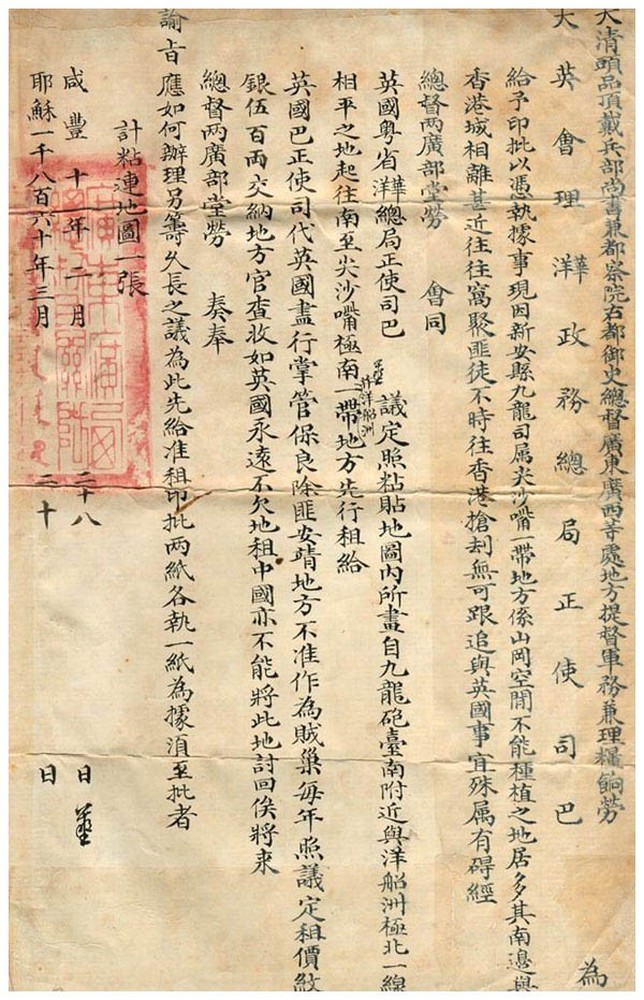 大清頭品頂戴兵部尚書兼都察院右都御史總督廣東廣西等處地方提督軍務兼理糧餉勞
大英會理華洋政務總局正使司巴 為
給予印批以憑執據事現因新安縣九龍司属尖沙嘴一帶地方係山岡空閒不能種植之地居多其南邊與
香港城相離甚近往往窩聚匪徒不時往香港搶刦無可跟追與英國事宜殊属有碍經
總督两廣部堂勞 會同
英國粤省華洋總局正使司巴 議定照粘貼地圖内所畫自九龍砲臺南附近與洋船洲極北一線
相平之地起往南至尖沙嘴極南一帶地方先行租給
并洋船洲
英國巴正使司代英國盡行掌管保良除匪安靖地方不准作為賊巢每年照議定租價紋
銀伍百両交納地方官查收如英國永遠不欠地租中國亦不能將此地討回俟將來
總督两廣部堂勞 奏奉
諭旨應如何辦理另籌久長之議為此先給准租印批两紙各執一紙為據湏至批者
計粘連地圖一張
咸豐十年二月 二十八 日
耶穌一千八百六十年三月 二十 日